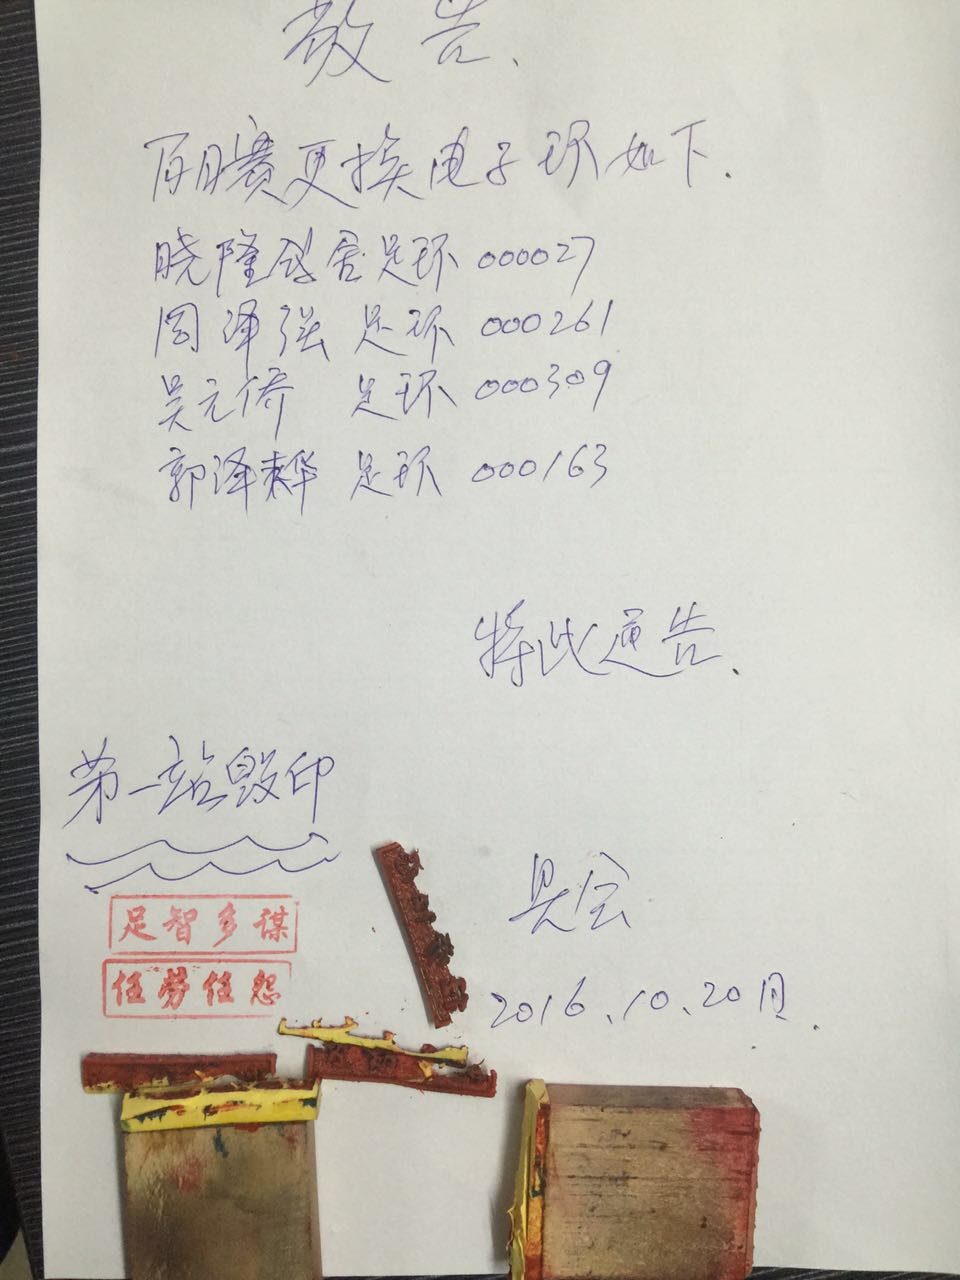 敬告.
百日赛更换电子环如下.
晓隆鸽舍足环000027
周泽强 足环000261
吴元侨 足环000309
郭泽 华 足环000163
特此通告.
第一站毁印
足智多谋
任劳任怨
县会
2016.10.20日.